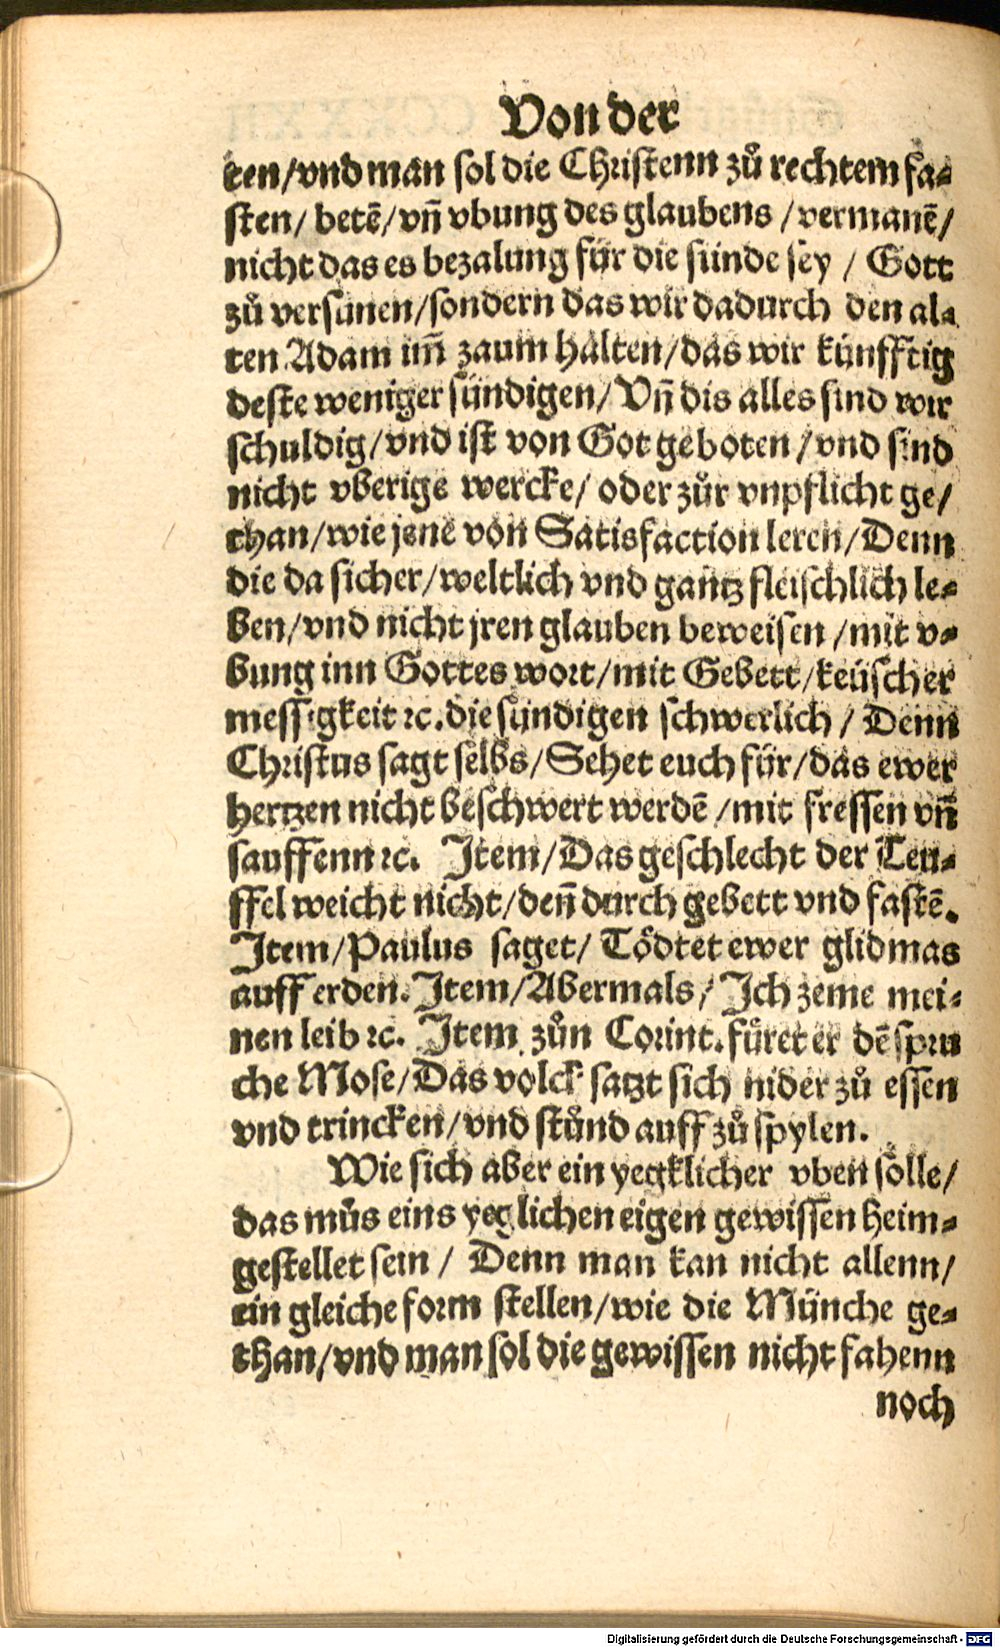 Von der
ten/vnd man sol die Christenn zů rechtem fa⸗
sten/ betē/vn̄ vbung des glaubens /vermanē/
nicht das es bezalung für die sünde sey / Gott
zů versünen/sondern das wir dadurch den al⸗
ten Adam im̄ zaum halten/das wir künfftig
deste weniger sündigen/ Vn̄ dis alles sind wir
schuldig/vnd ist von Got geboten /vnd sind
nicht vberige wercke/ oder zůr vnpflicht ge/
than/wie jene von Satisfaction leren/Denn
die da sicher/weltlich vnd gantz fleischlich le⸗
ben/vnd nicht jren glauben beweisen /mit v⸗
bung inn Gottes wort/mit Gebett/keüscher
messigkeit ꝛc. die sündigen schwerlich / Denn
Christus sagt selbs/Sehet euch für/das ewer
hertzen nicht beschwert werdē /mit fressen vn̄
sauffenn ꝛc. Item/Das geschlecht der Teu⸗
ffel weicht nicht/den̄ durch gebett vnd fastē.
Item/Paulus saget/ Tödtet ewer glidmas
auff erden. Item/Abermals/ Ich zeme mei⸗
nen leib ꝛc. Item zůn Corint. füret er dē spru
che Mose/Das volck satzt sich nider zů essen
vnd trincken/vnd stůnd auff zů spylen.
Wie sich aber ein yegklicher vben sölle/
das můs eins yeglichen eigen gewissen heim⸗
gestellet sein / Denn man kan nicht allenn/
ein gleiche form stellen/wie die Münche ge⸗
than/vnd man sol die gewissen nicht fahenn
noch
Digitalisierung gefördert durch die Deutsche Forschungsgemeinschaft - DFG